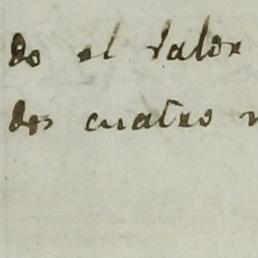 do el valor
dos cuatro